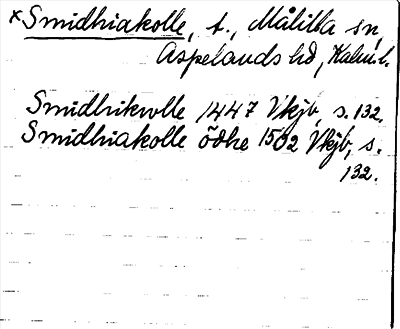 ×Smidhiakolle, t., Målilla sn,
Aspelands hd, Kalm.l.
Smidhikulle 1447 Vkjb, s. 132.
Smidhiakolle ödhe 1502 Vkjb, s.
132.